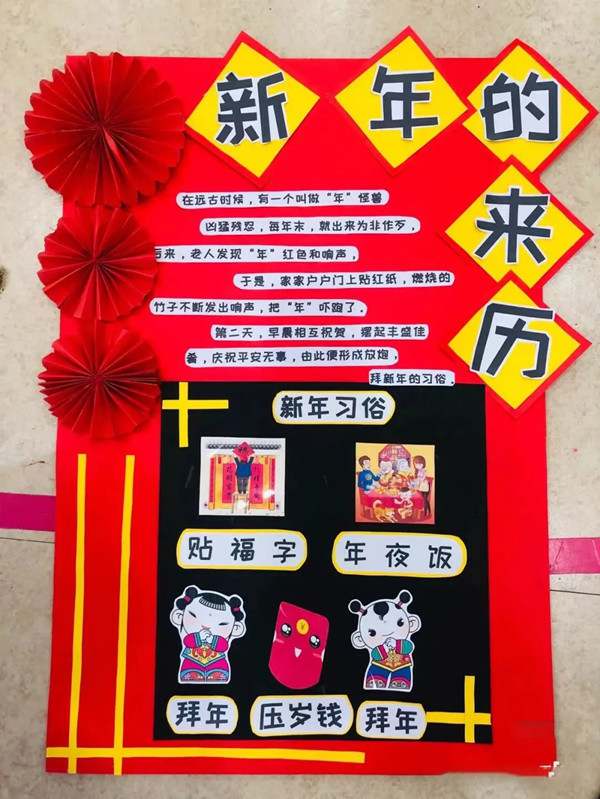 新年的来历
在远古时候，有一个叫做“年”怪兽
凶猛残忍，每年末，就出来为非作歹，
后来，老人发现“年”红色和响声，
于是，家家户户门上贴红纸，燃烧的
竹子不断发出响声，把“年”吓跑了．
第二天，早晨相互祝贺，摆起丰盛佳
肴，庆祝平安无事，由此便形成放炮，
拜新年的习俗．
新年习俗
贴福字
年夜饭
拜年
压岁钱
拜年